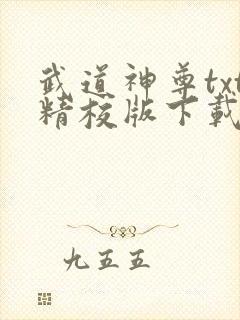 武道神尊txt
精校版下载
九五五